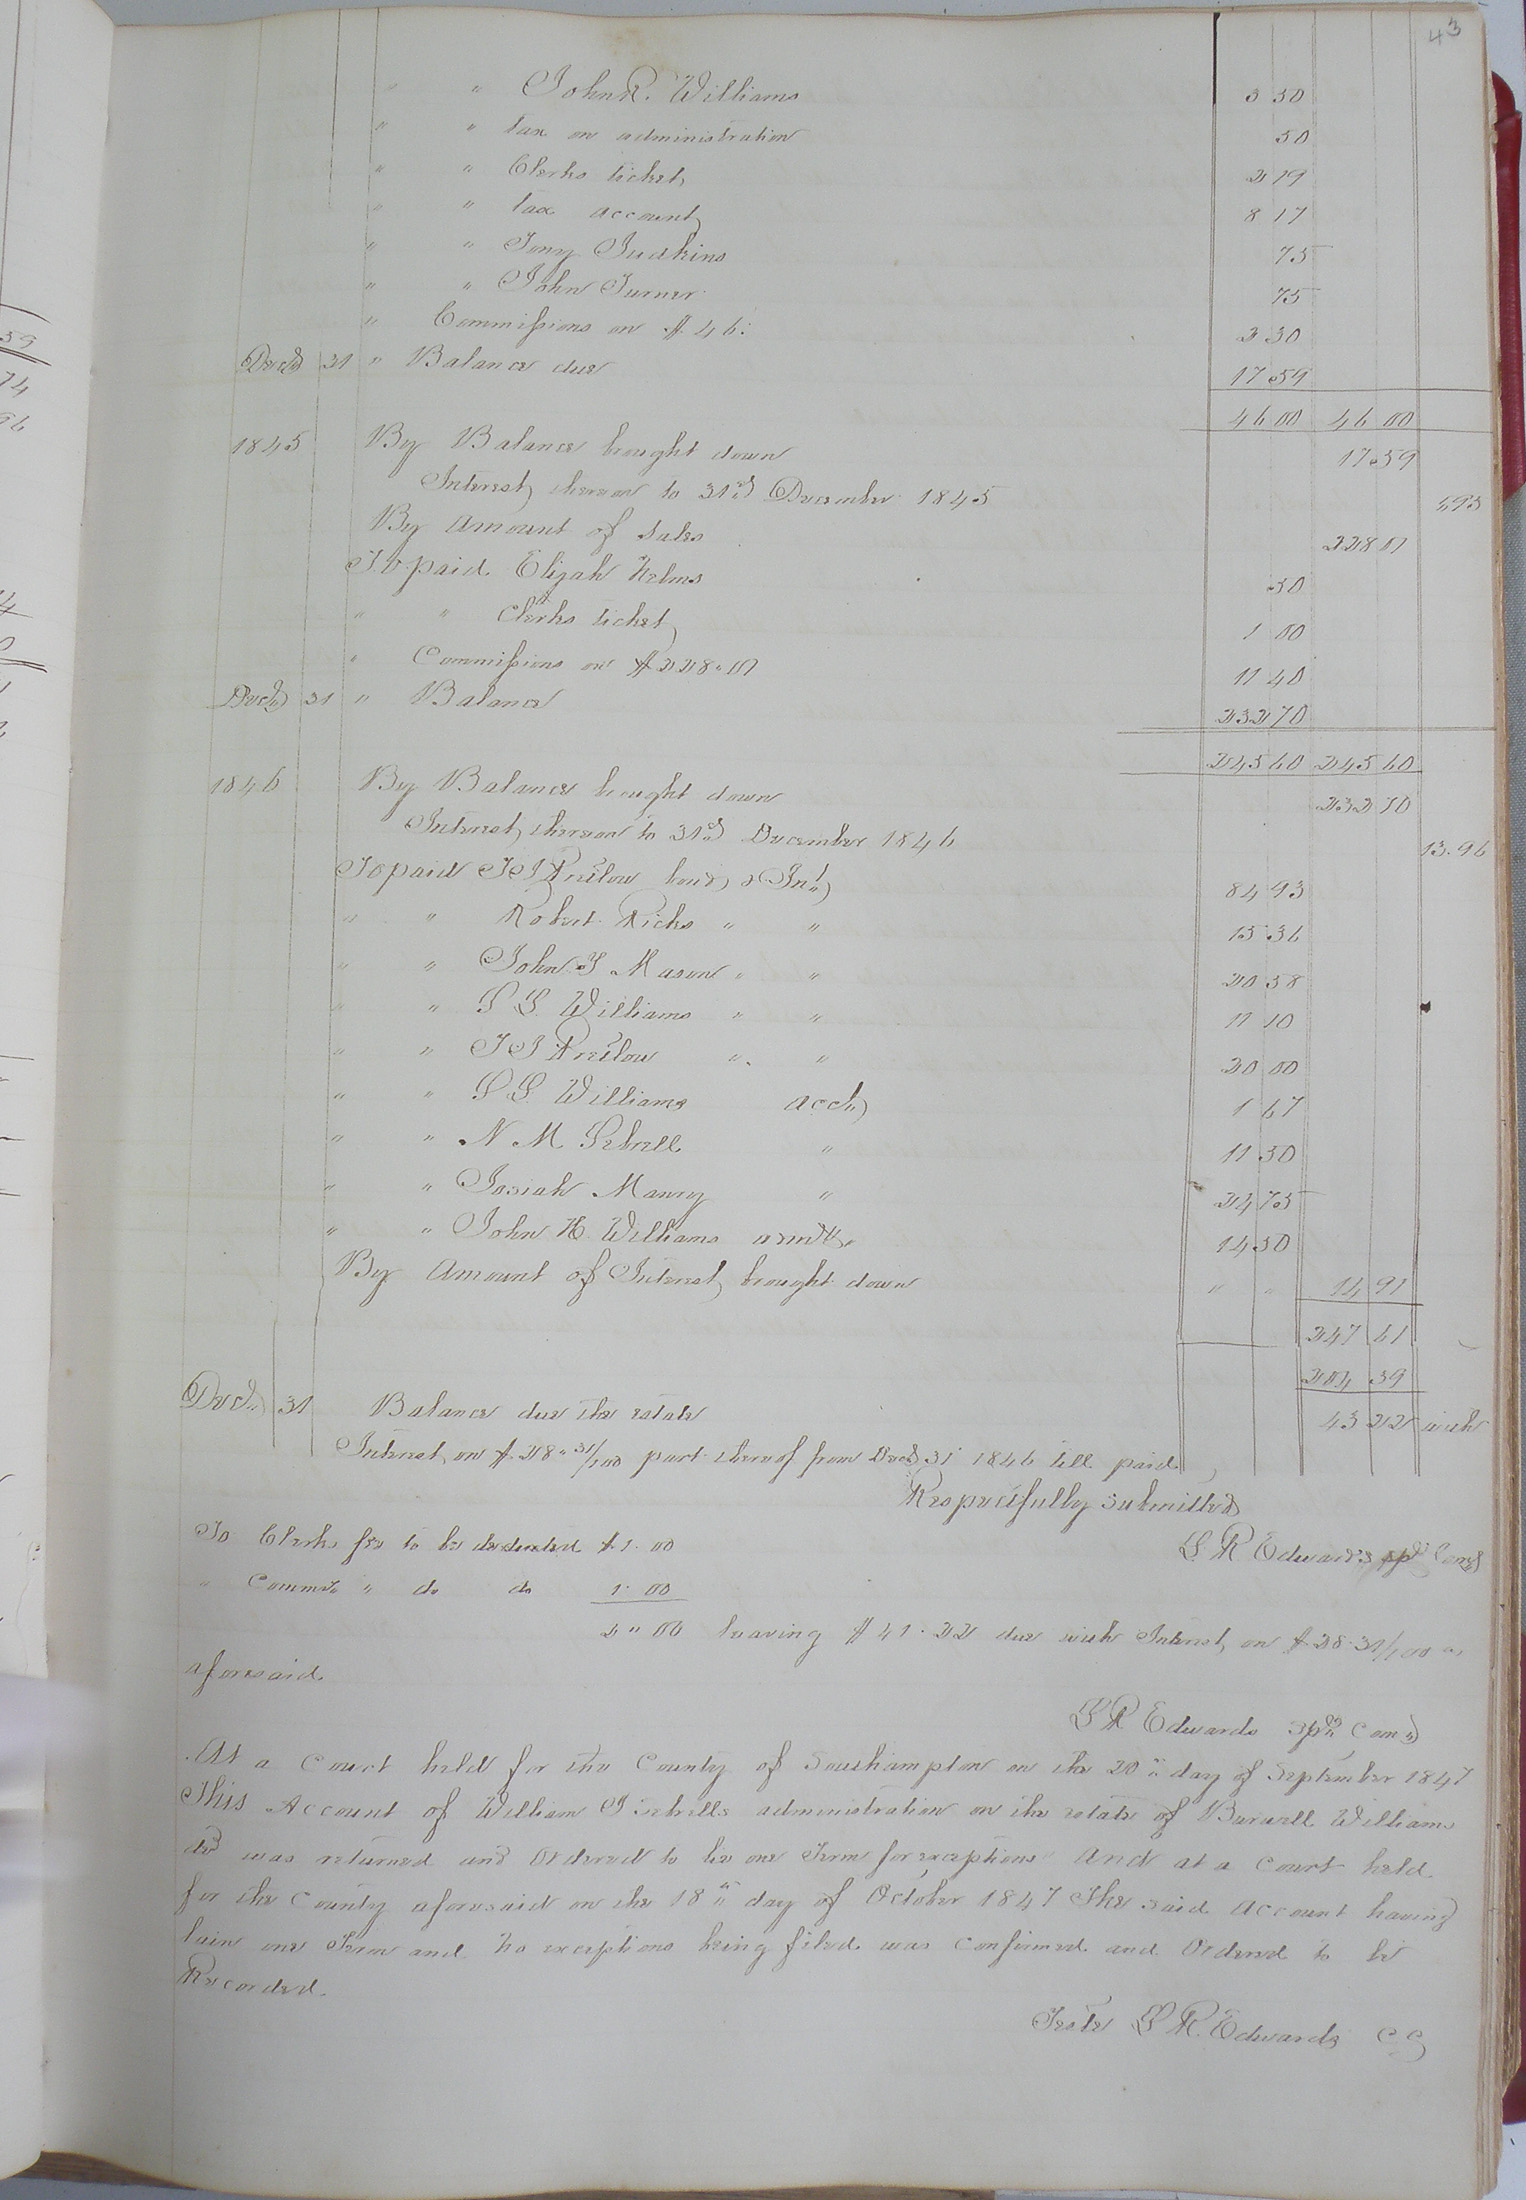 43
" " John R. Williams 3 50
" " tax on administration 50
" " Clerks ticket 2 19
" " tax account 8 17
" " Tony Judkins 75
" " John Turner 75
" Commissions on $46: 2 30
Decr 31 " Balance due 17 59
46 00 46 00
1845 By Balance brought down 17 59
Interest thereon to 31st December 1845 ,,95
By Amount of Sales 228 01
To paid Elijah Helms 50
" " Clerks ticket 1 00
" Commissions on $228.01 11 40
Decr 31 " Balance 232 70
245 60 245 60
1846 By Balance brought down 232 70
Interest thereon to 31st December 1846 13.96
To paid bond & Int 84 93
" " Robert Ricks " " 15 36
" " John Y Mason " " 20 58
" " Williams " " 11 10
" " " " 20 00
" " Williams acct 1 67
" " N M Sebrell " 11 50
" " Josiah Manry " 24 75
" " John H. Williams admr 14 50
By Amount of Interest brought down " " 14 91
247 61
204 39
Decr 31 Balance due the estate 43 22 with
Interest on $28" 31/100 part thereof from Decr 31 1846 till paid
Respectfully submitted
L R Edwards spl Comr
To Clerks fee to be deducted $1.00
" Commrs " do do 1.00
2 " 00 leaving $41.22 due with Interest on $28.31/100 as
aforesaid.
L R Edwards spl Comr
At a Court held for the County of Southampton on the 20th day of September 1847
This Account of William J Sebrells administration on the estate of Burwell Williams
decd was returned and Ordered to lie one Term for exceptions And at a Court held
for the County aforesaid on the 18th day of October 1847 The said Account having
lain one Term and no exceptions being filed was confirmed and Ordered to be
Recorded.
Teste L R. Edwards C C